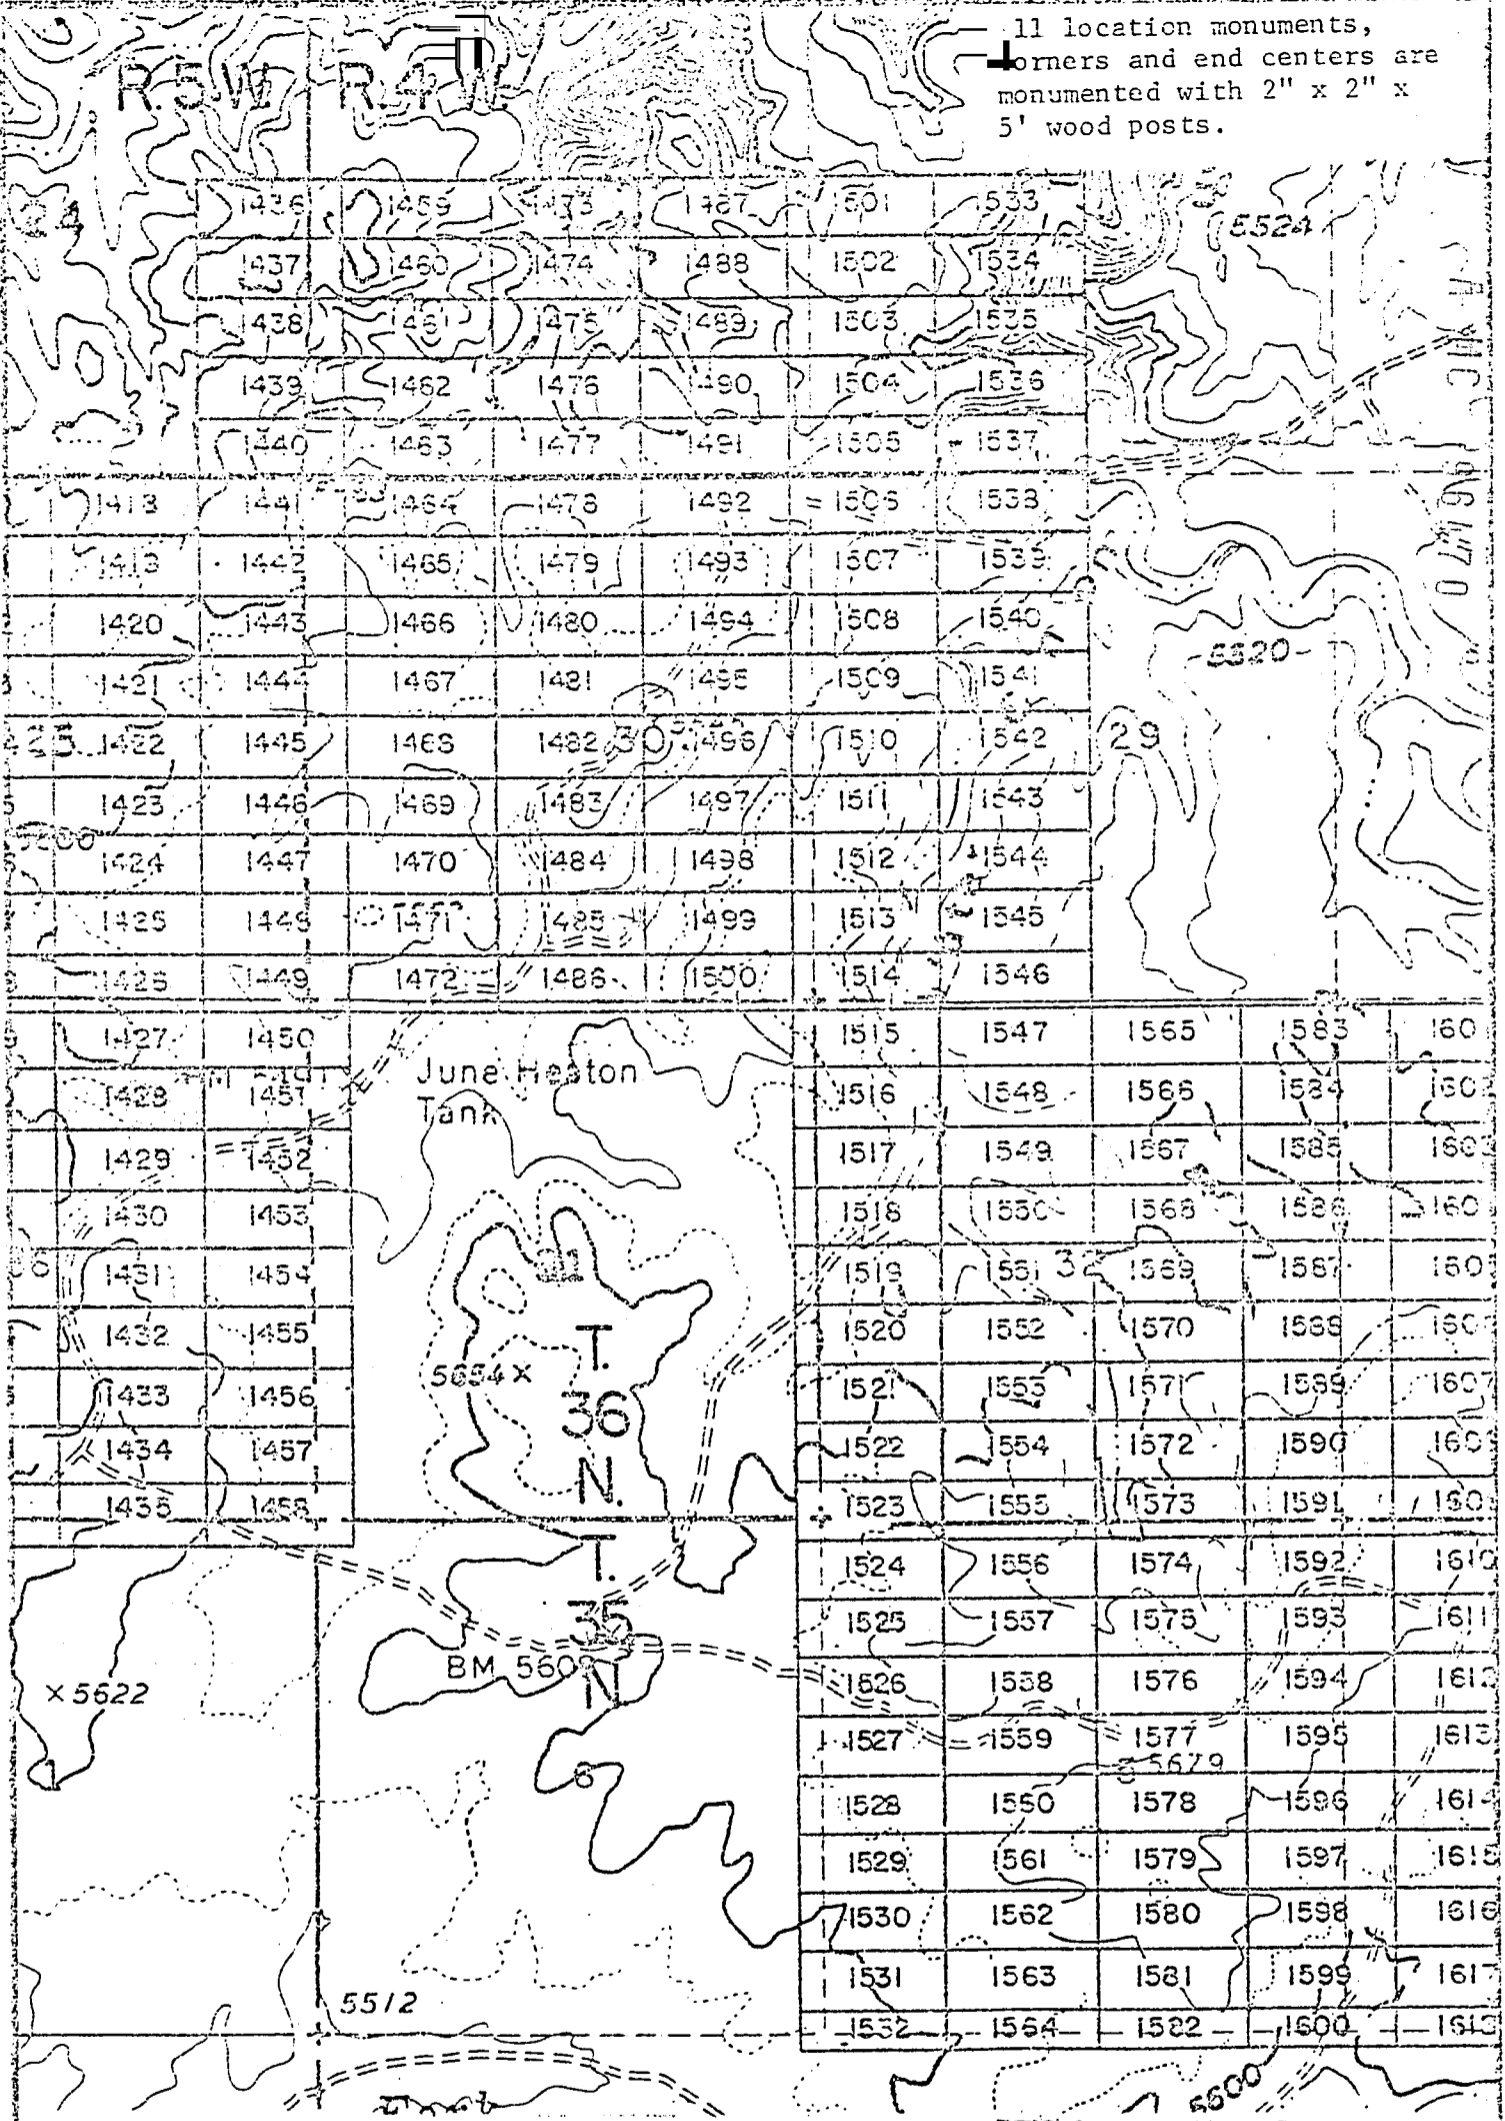 11 location monuments,
orners and end centers are
monumented with 2" x 2" x
5' wood posts.
R.5W. R.4W.
24
1436 1459 1473 1487 1501 1533
5524
1437 1460 1474 1488 1502 1534
1438 1461 1475 1489 1503 1535
1439 1462 1476 1490 1504 1536
1440 1463 1477 1491 1505 1537
1441 1464 1478 1492 1506 1538
1442 1465 1479 1493 1507 1539
1420 1443 1466 1480 1494 1508 1540
5520
1421 1444 1467 1481 1495 1509 1541
1422 1445 1468 1482 30 1496 1510 1542 29
1423 1446 1469 1483 1497 1511 1543
1424 1447 1470 1484 1498 1512 1544
1425 1448 1471 1485 1499 1513 1545
1426 1449 1472 1486 1500 1514 1546
1427 1450 1515 1547 1565 1583 160
June Heaton
Tank
1428 1451 1516 1548 1566 1584 160
1429 1452 1517 1549 1567 1585 160
1430 1453 1518 1550 1568 1586 160
1431 1454 1519 1551 1569 1587 160
1432 1455 1520 1552 1570 1588 160
T.
5654 ×
1433 1456 36 1521 1553 1571 1589 1607
1434 1457 1522 1554 1572 1590 160
N.
1435 1458 1523 1555 1573 1591 160
T.
1524 1556 1574 1592 1610
35
1525 1557 1575 1593 1611
BM 560
N
× 5622
1526 1558 1576 1594 1612
1527 1559 1577 1595 1613
5679
1 6
1528 1560 1578 1596 1614
1529 1561 1579 1597 1615
1530 1562 1580 1598 1616
1531 1563 1581 1599 1617
5512
1532 1564 1582 1600
5600